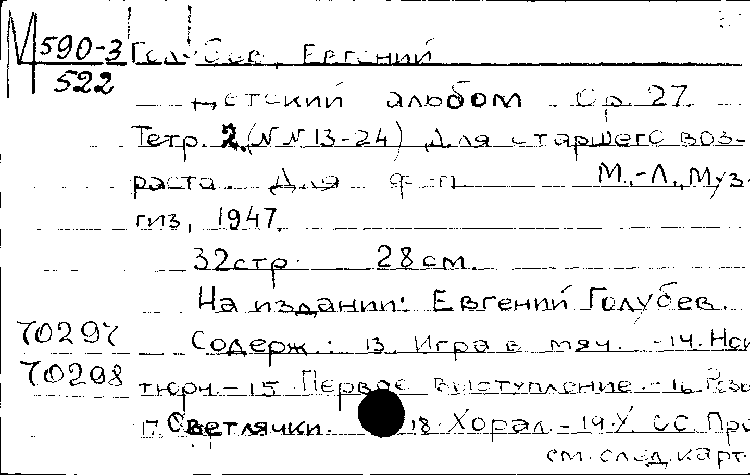 М 590-3
522
Голубев, Евгений
Детский альбом Ор. 27.
Тетр. 2. (NN 13-24) Для старшего воз-
раста. Для ф-п М.-Л., Муз-
гиз, 1947.
32стр. 28см.
На издании: Евгений Голубев.
70297
Содерж.: 13. Игра в мяч. -14. Нок
70298
тюрн. -15. Первое выступление. - 16.
17. Светлячки. 18. Хорал. - 19.
см. след. карт.